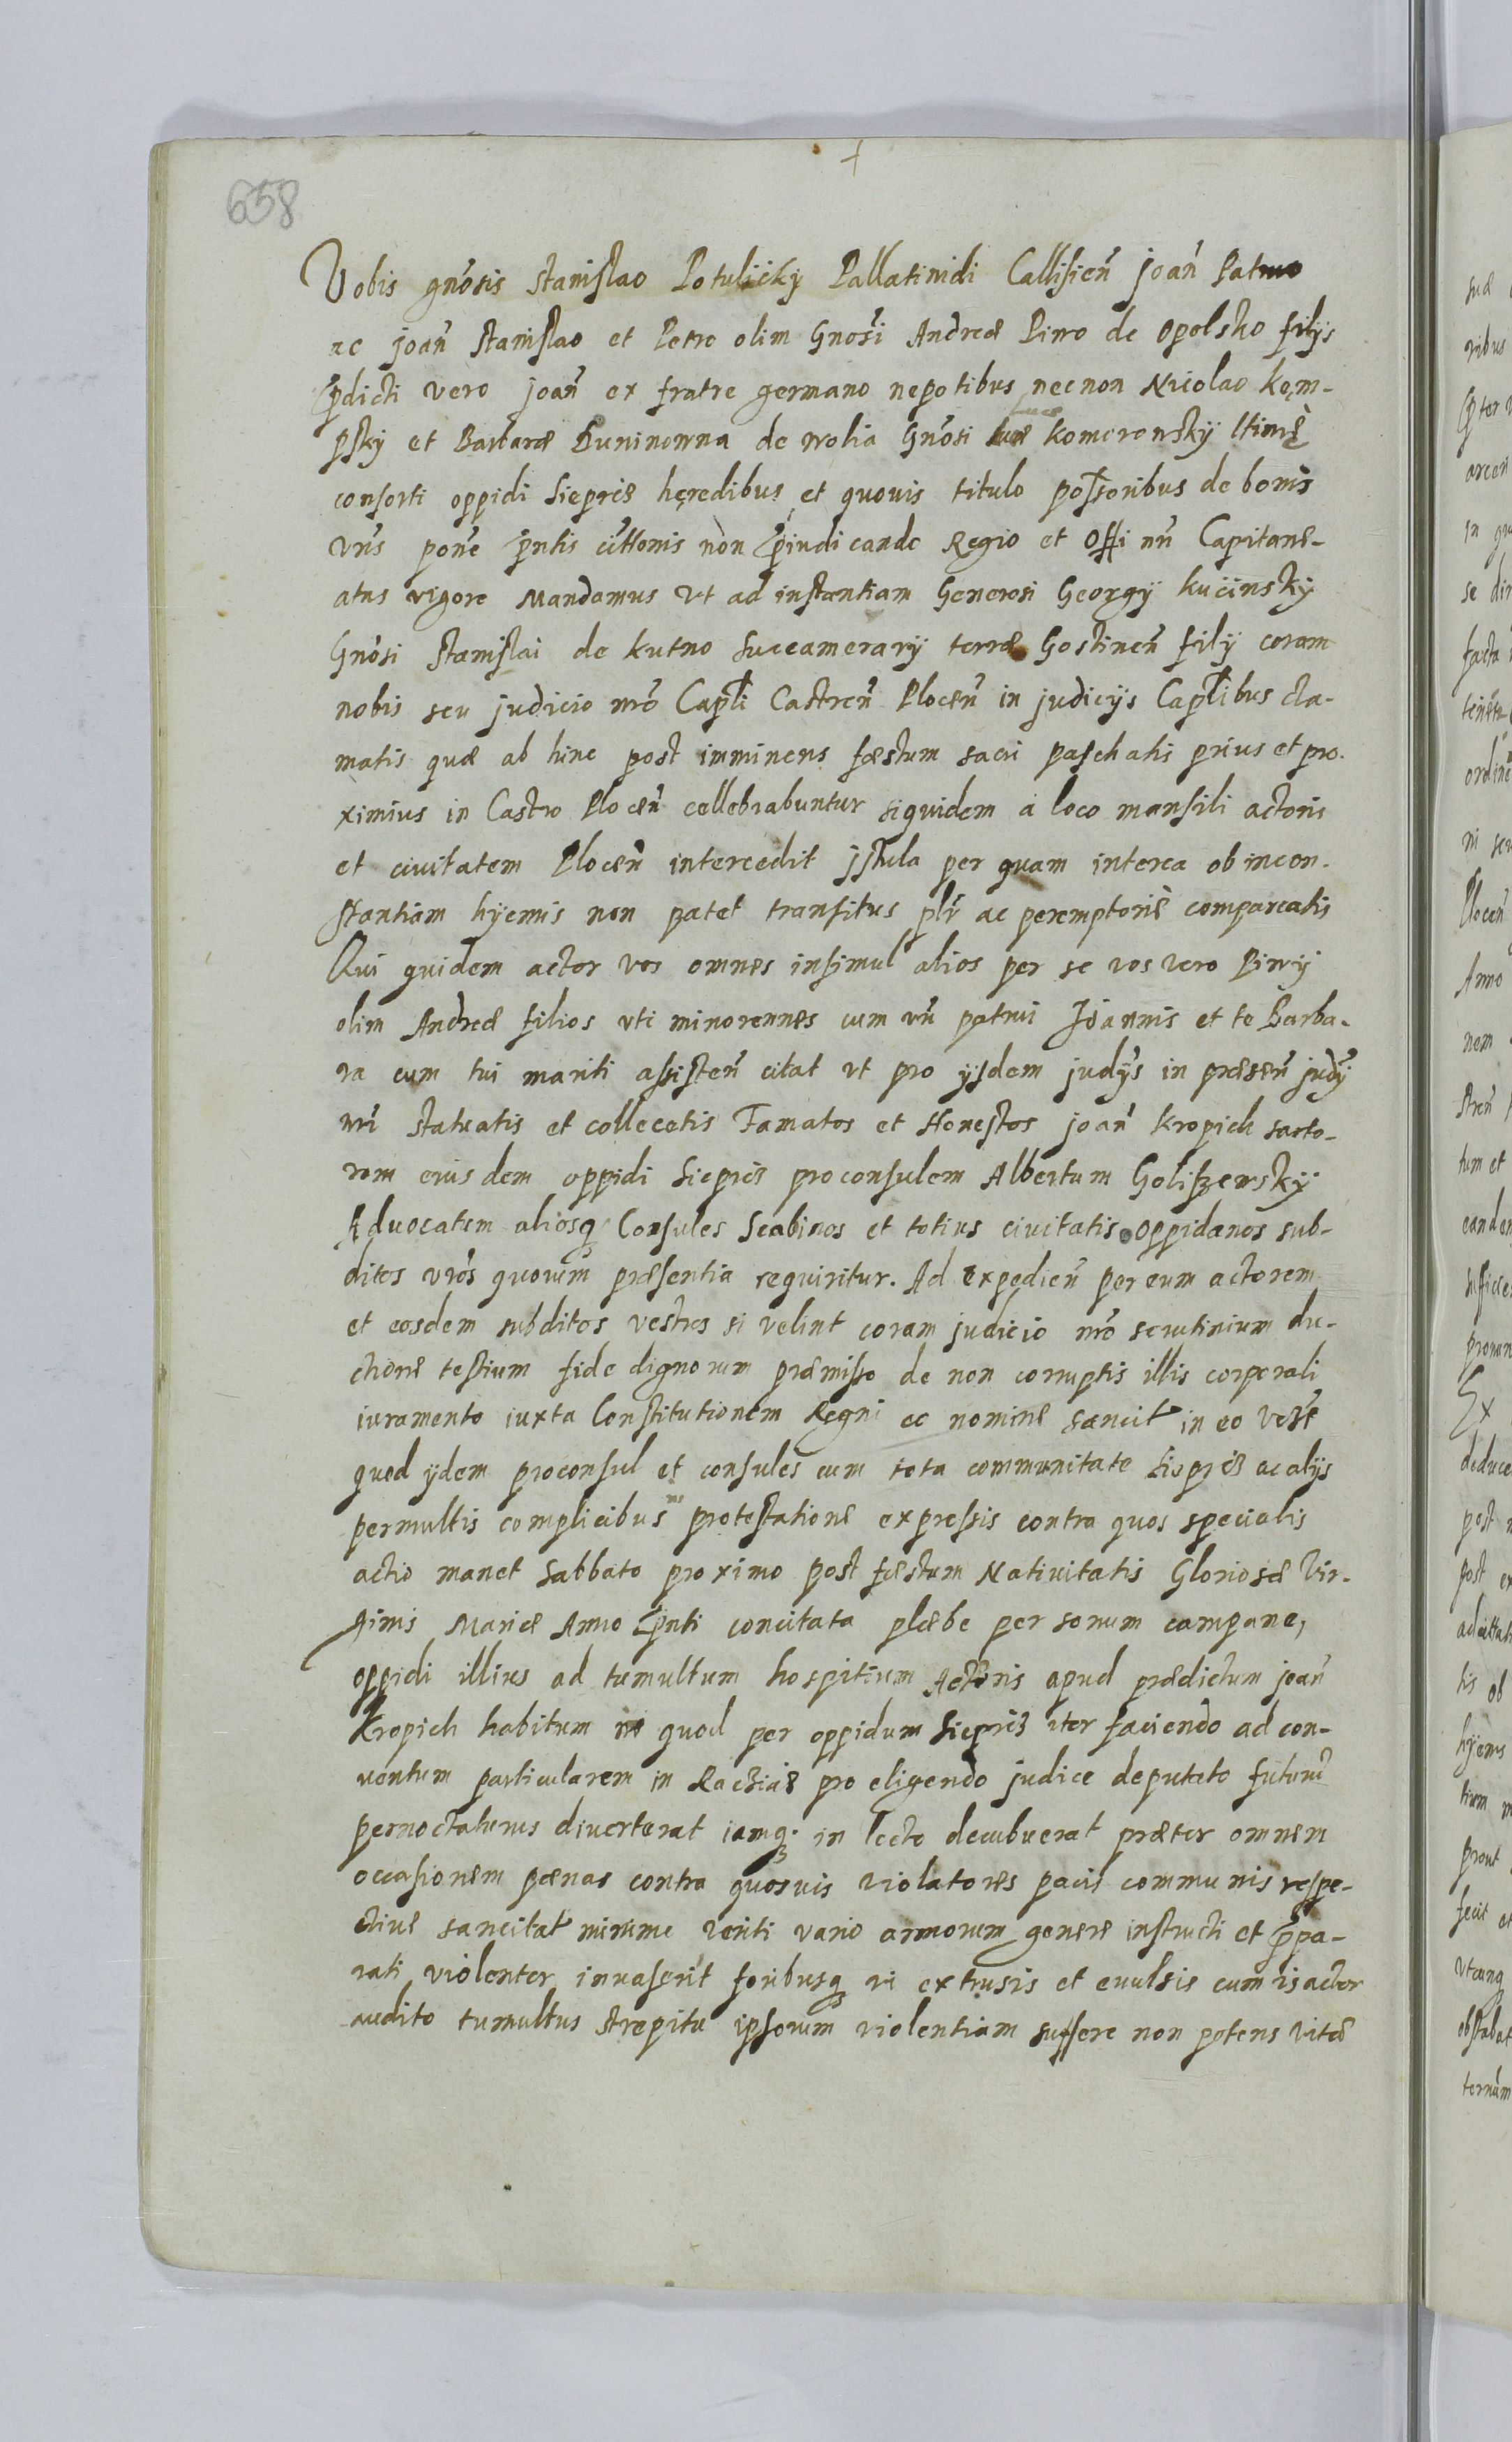 658
Vobis gnosis Stanislao Potulicky Pallatinidi Callisien̄ Joan̄ Patruo
ac Joan̄ Stanislao et Petro olim Gnosi Andreæ Piwo de Opolsko filijs
p̄dicti vero Joan̄ ex fratre germano nepotibus necnon Nicolao Kom-
psky et Barbaræ Duninowna de Wolia Gnosi Lucæ Komorowsky ltimę
consorti oppidi Siepres heredibus et quouis titulo possoribus de bonis
vrīs pone p̄ntis cittōnis non p̄iudicando Regio et Offi nrī Capitane-
atus vigore Mandamus vt ad instantiam Generosi Georgij Kucinsky
Gnosi Stanislai de Kutno Succamerarij terræ Gostinen̄ filij coram
nobis seu judicio nrō Capli Castren̄ Plocen̄ in judicijs Caplibus cla-
matis quæ ab hinc post imminens fæstum sacri paschatis prius et pro-
ximius in Castro Plocen̄ cellebrabuntur siquidem a loco mansili actoris
et ciuitatem Plocen̄ intercedit jstula per quam interea ob incon-
stantiam hyemis non patet transitus plr̄ ac peremptorie compareatis
Qui quidem actor vos omnes insimul alios per se vos vero Piwij
olim Andreæ filios vti minorennes cum vrī patrui Joannis et te Barba-
ra cum tui mariti assisten̄ citat vt pro ijsdem judijs in præsen̄ judij
nrī statuatis et collocetis Famatos et Honestos Joan̄ Kropich sarto-
rem eiusdem oppidi Siepres proconsulem Albertum Goliszewsky
Aduocatum aliosq Consules Scabinos et totius ciuitatis oppidanos sub-
ditos vrōs quorum præsentia requiritur. Ad expedien̄ per eum actorem
et eosdem subditos vestros si velint coram judicio nrō scrutinium du-
ctione testium fide dignorum præmisso de non corruptis illis corporali
iuramento iuxta Constitutionem Regni ec nomine sancit in eo
quod ijdem proconsul et consules cum tota communitate Siepres ac alijs
permultis complicibus in protestatione expressis contra quos specialis
actio manet Sabbato proximo post fæstum Natiuitatis Gloriosæ Vir-
ginis Mariæ Anno p̄nti concitata plæbe per sonum campane,
oppidi illius ad tumultum hospitium Actoris apud prædictum Joan̄
Kropich habitum quod per oppidum Siepres iter faciendo ad con-
uentum particularem in Raciaz pro eligendo judice deputato futuru
pernoctaturus diuerterat iamq. in lecto decubuerat præter omnem
occasionem pœnas contra quosuis violatores pacis communis respe-
ctiue sancitat minime veriti vario armorum genere instructi et p̄pa-
rati violenter inuaserūt foribusq vi extrusis et euulsis cum is actor
audito tumultus strepitu ipsorum violentiam suffere non potens vitæ